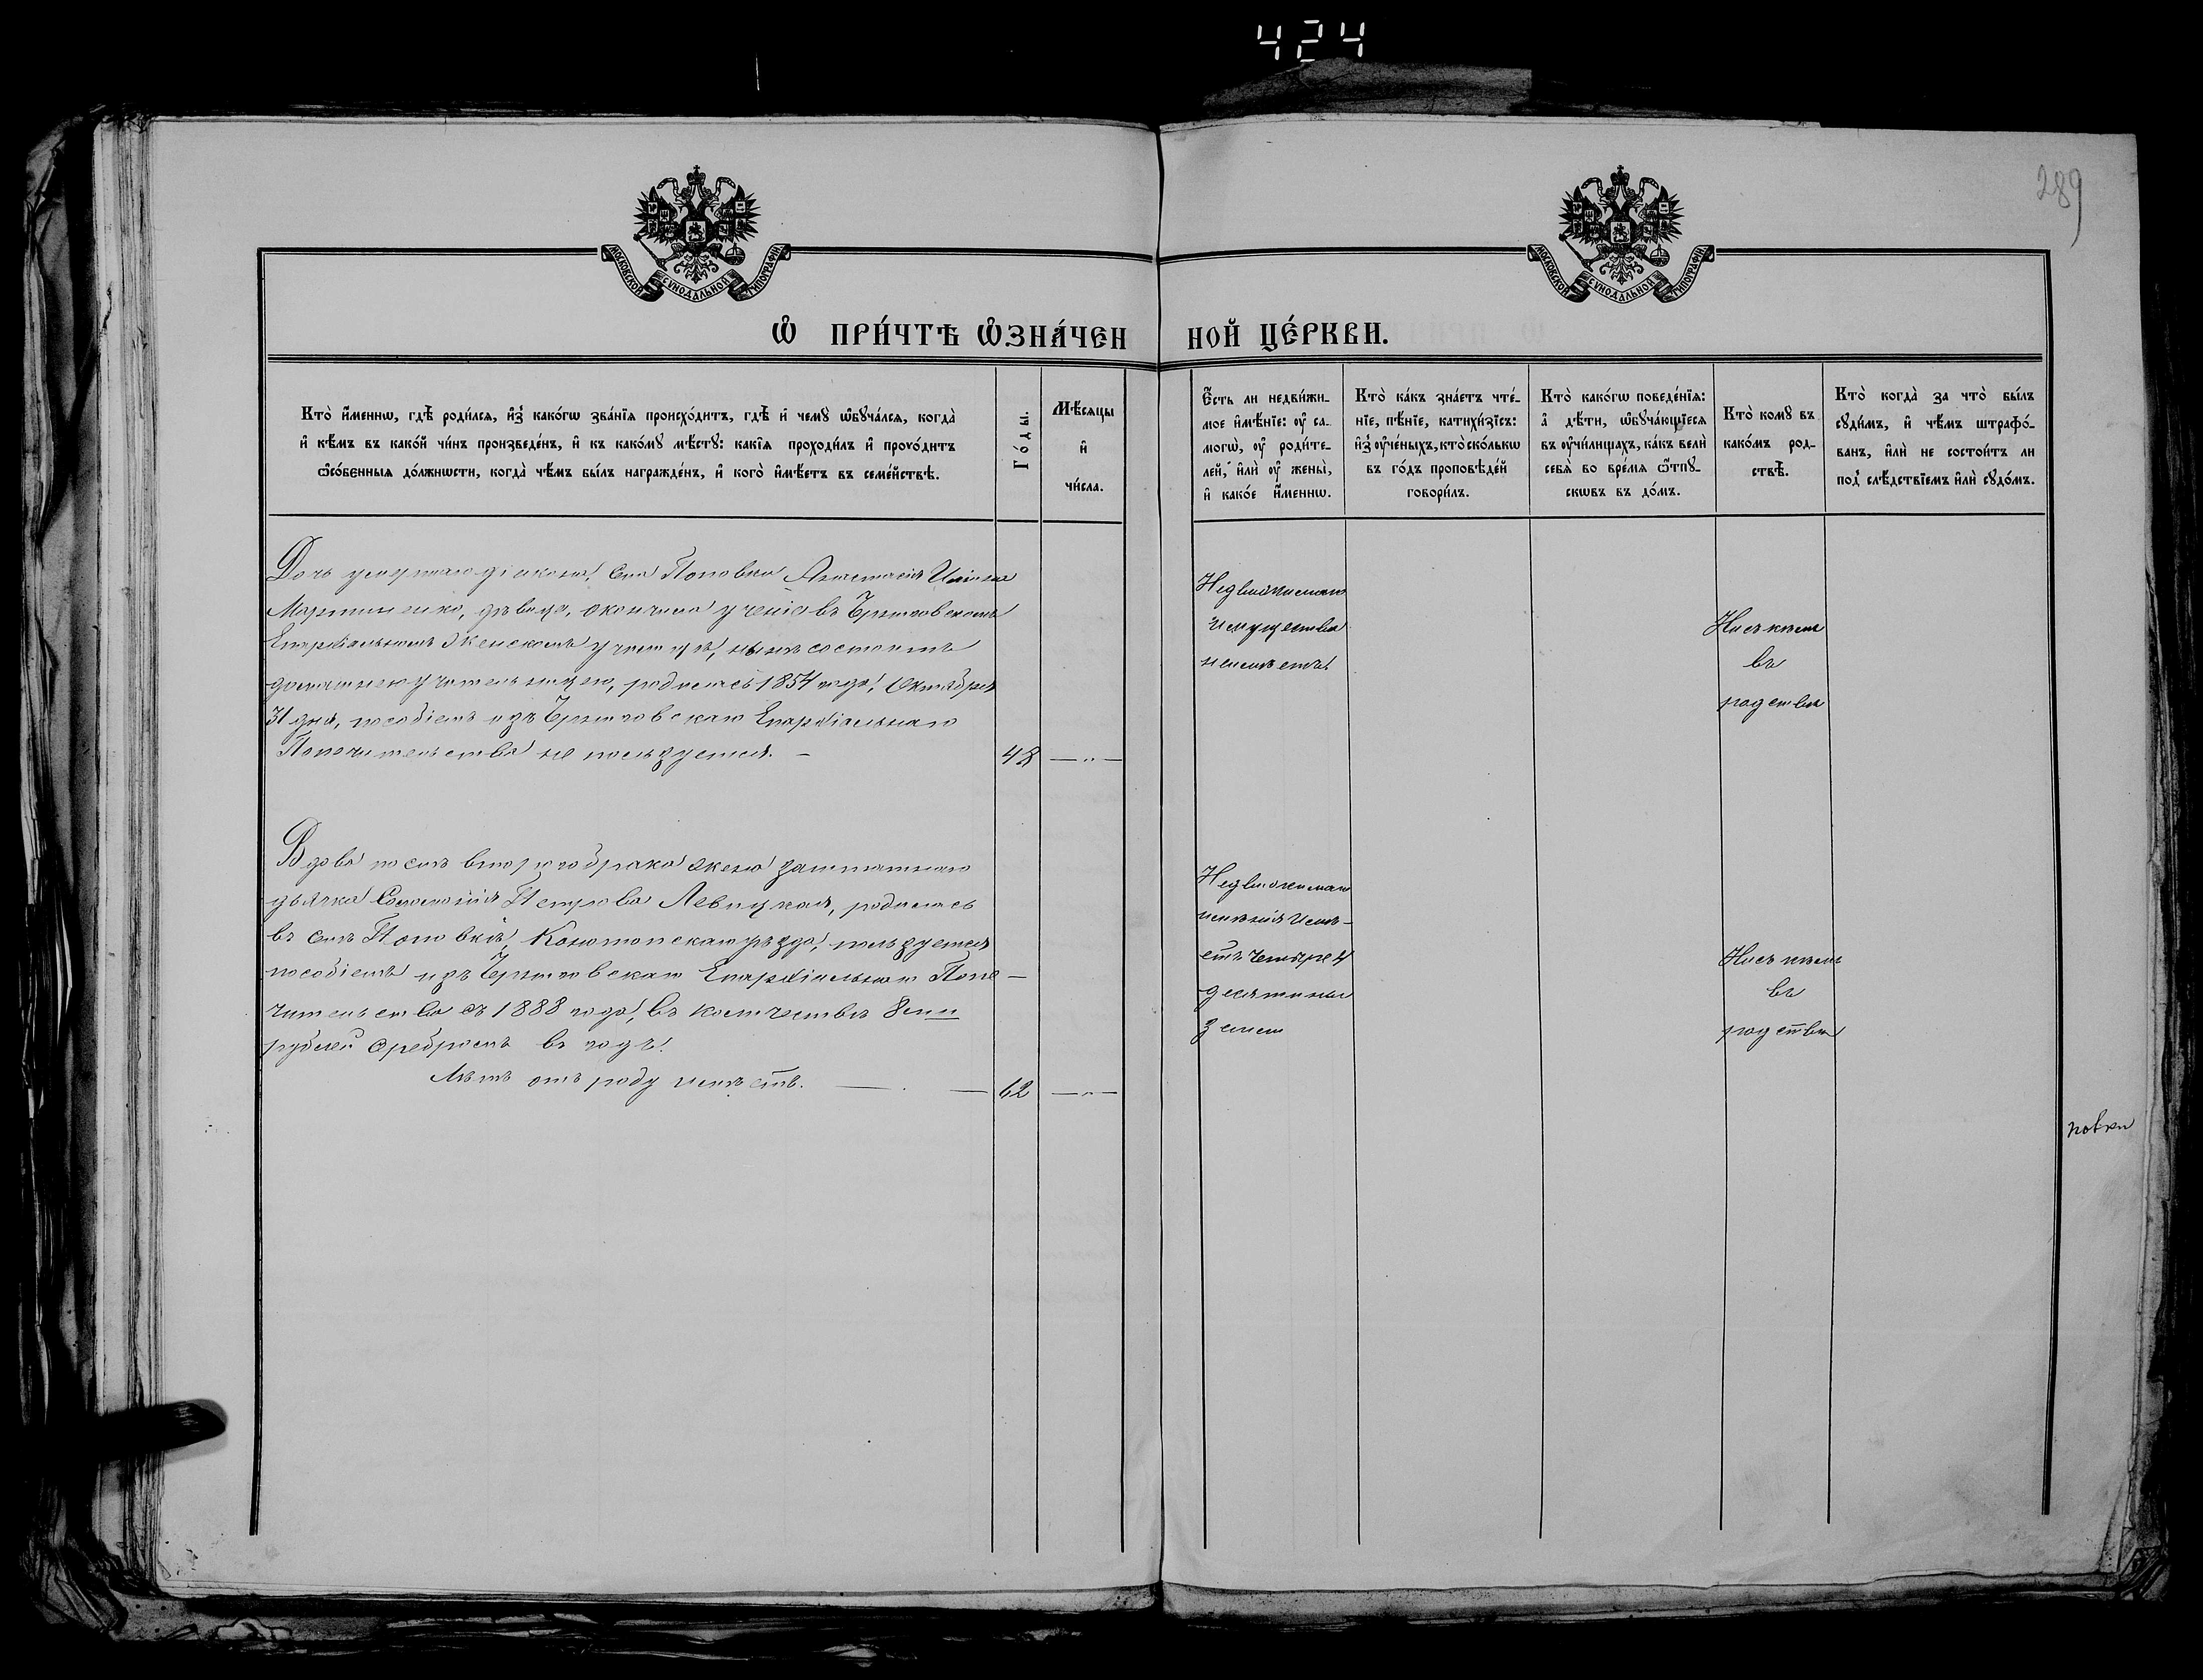 424
289
МОСКОВСКОЙ СѴНОДАЛЬНОЙ ТИПОГРАФІИ
МОСКОВСКОЙ СѴНОДАЛЬНОЙ ТИПОГРАФІИ
Ѽ ПРИ́ЧТѢ Ѽ҆ЗНА́ЧЕН НОЙ ЦЕ́РКВИ.
Кто̀ и҆́меннѡ, гдѣ̀ роди́лся, и҆з̾ како́гѡ зва́нїя происхо́дитъ, гдѣ̀ и҆ чемꙋ̀ ѡ҆бꙋча́лся, когда̀
и҆ кѣ́мъ въ како́й чи́нъ произведе́нъ, и҆ къ како́мꙋ мѣ́стꙋ: какі́я проходи́лъ и҆ прохо́дитъ
ѻ҆со́бенныя до́лжности, когда̀ чѣ́мъ бы́лъ награжде́нъ, и҆ кого̀ и҆мѣ́етъ въ семе́йствѣ.
Го́ды.
Мѣ́сяцы
и҆
чи́сла.
Є҆́сть ли недви́жи-
мое и҆мѣ́нїе: ᲂу҆ са-
могѡ̀, ᲂу҆ роди́те-
лей, и҆лѝ ᲂу҆ жены̀,
и҆ како́е и҆́меннѡ.
Кто̀ ка́къ зна́етъ чте́-
нїе, пѣ́нїе, катихи́зїсъ:
и҆з̾ ᲂу҆че́ныхъ, кто̀ ско́лькѡ
въ го́дъ проповѣ́дей
говори́лъ.
Кто̀ како́гѡ поведе́нїя:
а҆ дѣ́ти, ѡ҆бꙋча́ющїеся
въ ᲂу҆чи́лищахъ, ка́къ велѝ
себѧ̀ во вре́мя ѿпꙋ-
сковъ въ до́мъ.
Кто̀ комꙋ̀ въ
како́мъ род-
ствѣ̀.
Кто̀ когда̀ за что̀ бы́лъ
сꙋди́мъ, и҆ чѣ́мъ штрафо́-
ванъ, и҆лѝ не состои́тъ ли
под̾ слѣ́дствїемъ и҆лѝ сꙋдо́мъ.
Дочь умершаго діакона села Поповки Анастасія
Мартиненко, дѣвица, окончила ученіе въ Черниговскомъ
Епархіальномъ Женскомъ училищѣ, нынѣ состоитъ
домашнею учительницею, родилась 1854 года, Октября
31 дня, пособіемъ изъ Черниговскаго Епархіальнаго
Попечительства не пользуется. — 48 —"—
Недвижимаго
имущества
неимѣетъ.
Ни съ кѣмъ
въ
родствѣ
Вдова послѣ второго брака жена заштатнаго
дьячка Соломонія Петрова Левицкая, родилась
въ селѣ Поповкѣ, Конотопскаго уѣзда, пользуется
пособіемъ изъ Черниговскаго Епархіальнаго Попе-
чительства съ 1888 года, въ количествѣ 8ми
рублей серебромъ въ годъ.
Лѣтъ отъ роду имѣетъ. — 62 —"—
Недвижимаго
имѣнія имѣ-
етъ четыре 4
десятины
земли
Ни съ кѣмъ
въ
родствѣ
повки